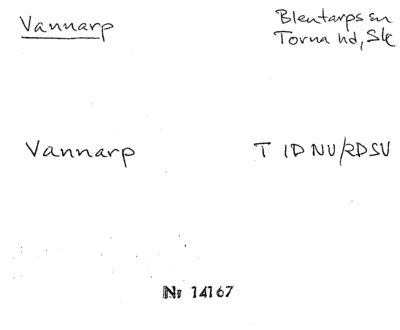 Vannarp
Blentarps sn
Torna hd, Sk
Vannarp
T ID NV/2D SV
Nr 14167